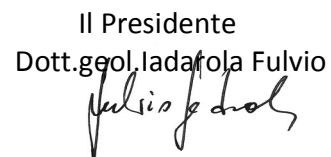 Il Presidente
Dott.geol.Iadarola Fulvio
Fulvio Iadarola